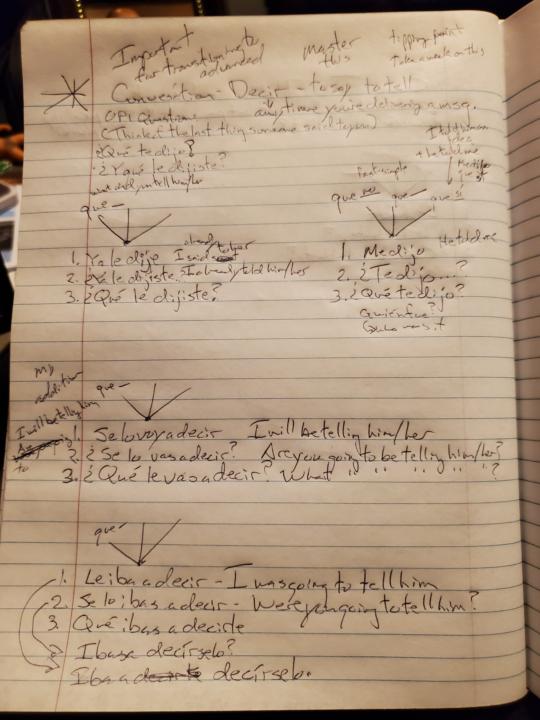 Important
for transitioning to
advanced
master
this
tipping point
Take a week on this
Conversation - Decir - to say to tell
OPI Question
anytime you're delivering a msg.
(Think of the last thing someone said to you
¿Qué te dijo?
¿Y a qué le dijiste?
what did you tell him/her
que —
I told him
+ he told me
Me dijo
que sí
Past simple
que no que — que sí
already
1. Ya le dijo I said to her
2. ¿Ya le dijiste. I already told him/her
3. ¿Qué le dijiste?
1. Me dijo He told me
2. ¿Te dijo...?
3. ¿Qué te dijo?
Quién fue?
Who was it
My
addition
que —
I will be telling him
to
1. Se lo voy a decir I will be telling him/her
2. ¿Se lo vas a decir? Are you going to be telling him/her?
3. ¿Qué le vas a decir? What " " " " " ?
que —
1. Le iba a decir - I was going to tell him
2. Se lo ibas a decir - Were you going to tell him?
3. Qué ibas a decirle
2 Ibas a decírselo?
Iba a decírselo.